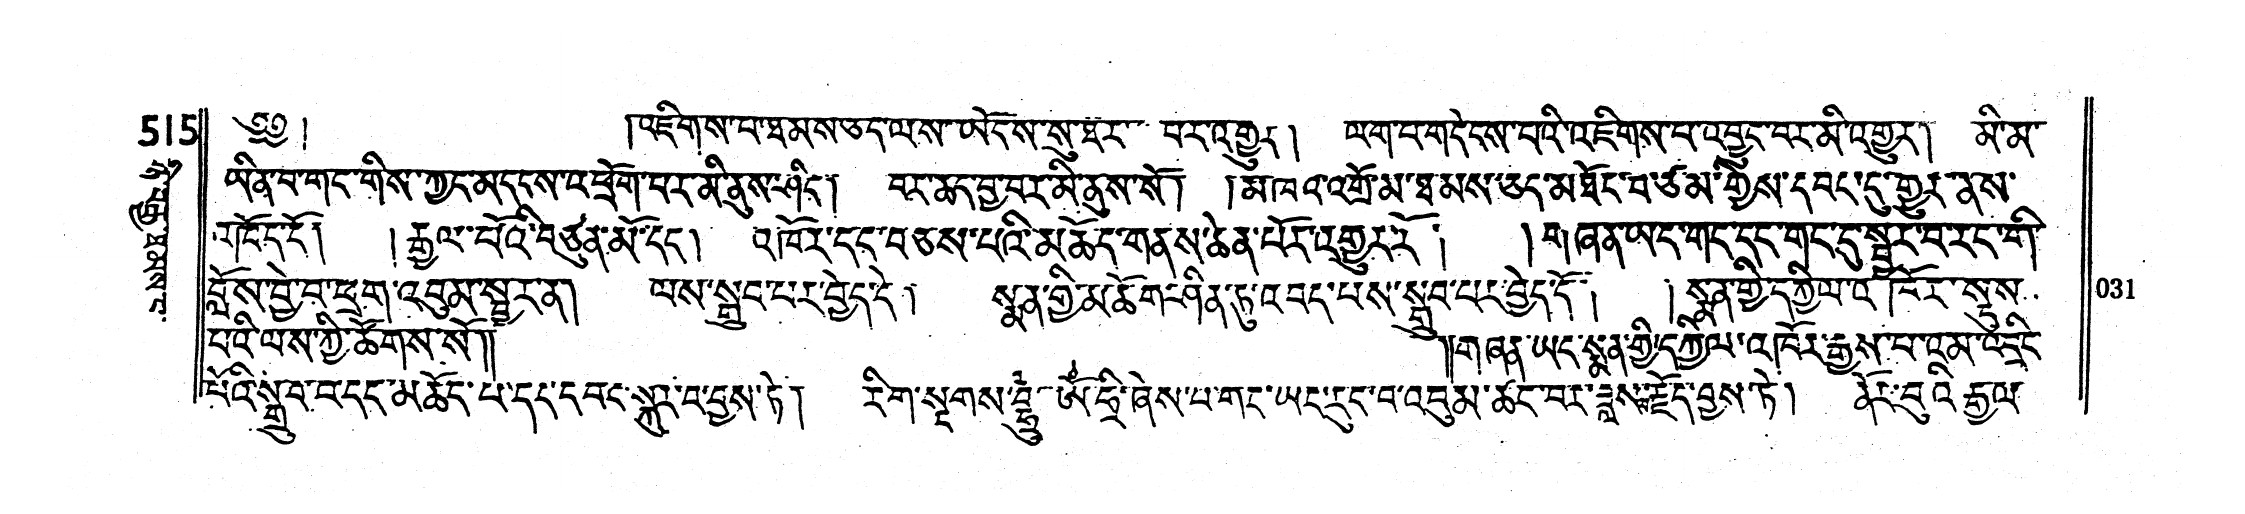 515
༄༅། །འཇིགས་པ་ཐམས་ཅད་ལས་ཡོངས་སུ་ཐར་ པར་འགྱུར། ལག་པ་གདེངས་པའི་འཇིགས་པ་འབྱུང་བར་མི་འགྱུར། མི་མ་
ཡིན་པ་གང་གིས་ཀྱང་མདངས་འཕྲོག་པར་མི་ནུས་ཤིང་། བར་ཆད་བྱ་བར་མི་ནུས་སོ། །མཁའ་འགྲོ་མ་ཐམས་ཅད་མཐོང་བ་ཙམ་གྱིས་དབང་དུ་གྱུར་ནས་
གཏོད་དོ། །རྒྱལ་པོའི་བཙུན་མོ་དང་། འཁོར་དང་བཅས་པའི་མཆོད་གནས་ཆེན་པོར་འགྱུར་རོ། །གཞན་ཡང་གང་དང་གང་དུ་སྦྱར་བ་དང་གི་
བློས་བྱེ་བ་ཕྲག་འབུམ་སྦྱར་ན། ལས་སྒྲུབ་པར་བྱེད་དེ། སྨན་གྱི་མཆོག་ཤིན་ཏུ་འབད་པས་སྒྲུབ་པར་བྱེད་དོ། །སྨན་གྱི་དཀྱིལ་འཁོར་སྡུས་
པའི་ལས་ཀྱི་ཚོགས་སོ།། །།གཞན་ཡང་སྨན་གྱི་དཀྱིལ་འཁོར་རྒྱས་པ་འམ་འབྲིང་
པོའི་སྒྲུབ་བ་དང་མཆོད་པ་དང་དབང་སྐུར་བ་བྱས་ཏེ། རིག་སྔགས་ ཨོཾ་ཧྲཱི་ཞེས་པ་གང་ཡང་རུང་བ་འབུམ་ཚང་བར་བཟླས་བརྗོད་བྱས་ཏེ། ནོར་བུའི་རྒྱལ་
031